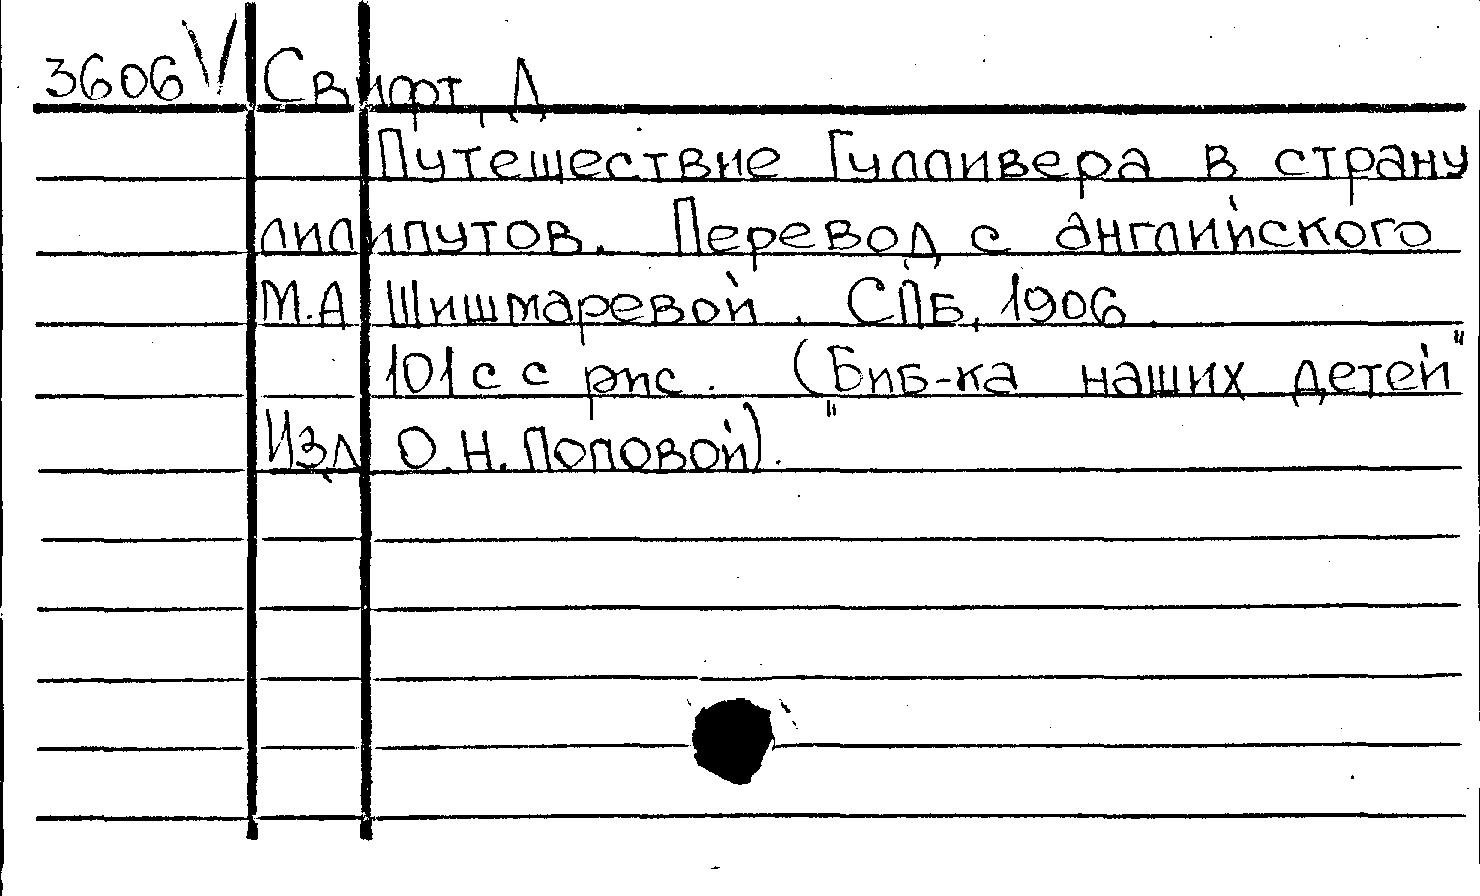 3606 V Свифт, Д
Путешествие Гулливера в страну
лилипутов. Перевод с английского
М.А Шишмаревой. СПБ, 1906.
101 с с рис. (Биб-ка "наших детей"
Изд О.Н. Поповой).